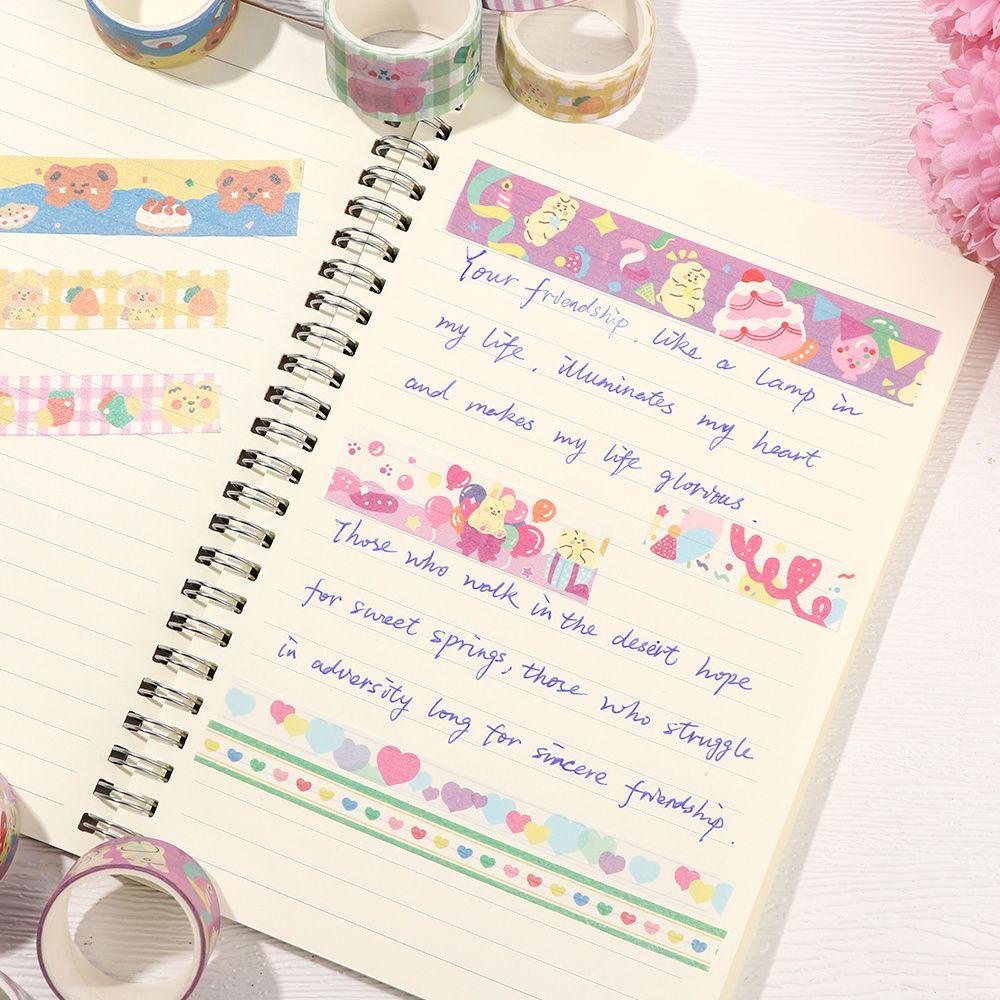 Your friendship, like a lamp in
my life, illuminates my heart
and makes my life glorious.
Those who walk in the desert hope
for sweet springs, those who struggle
in adversity long for sincere friendship.